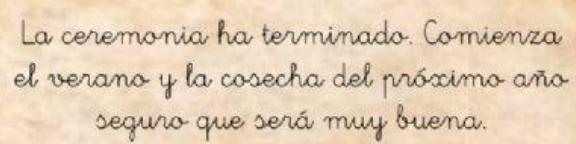 La ceremonia ha terminado. Comienza
el verano y la cosecha del próximo año
seguro que será muy buena.